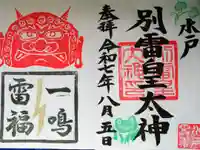 水戸
別雷皇太神
奉拝 令和七年八月五日
一鳴
雷福